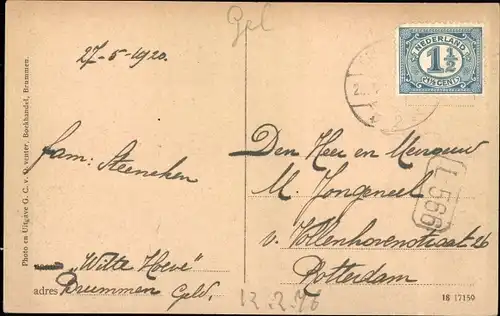 Gel
27-5-1920.
NEDERLAND
1½
1½ CENT
fam: Steeneken
Den Heer en Mevrouw
M. Jongeneel
v. Vollenhovenstraat 26
Rotterdam
L 566
"Witte Hoeve"
adres Brummen Geld.
Photo en Uitgave G. C. v. Deventer, Boekhandel, Brummen.
12.2.76
16 17159